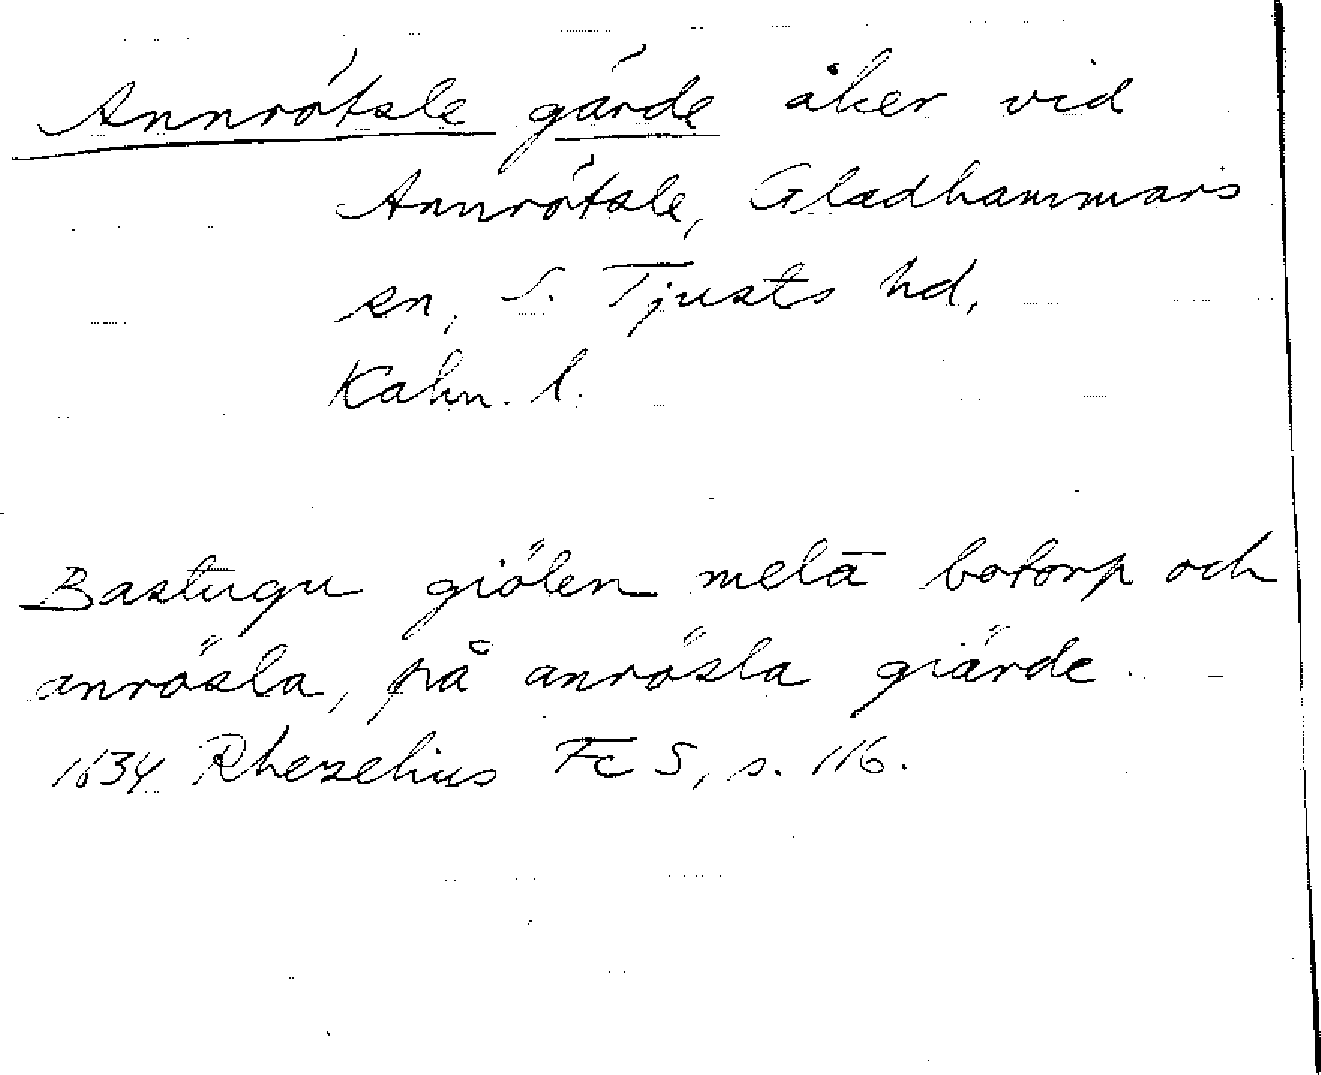 Annrötsle gärde åker vid
Annrötsle, Gladhammars
sn, S. Tjusts hd,
Kalm. l.
Bastugu giölen melā botorp och
anrösla, på anrösla giärde.
1634 Rhezelius Fc 5, s. 116.